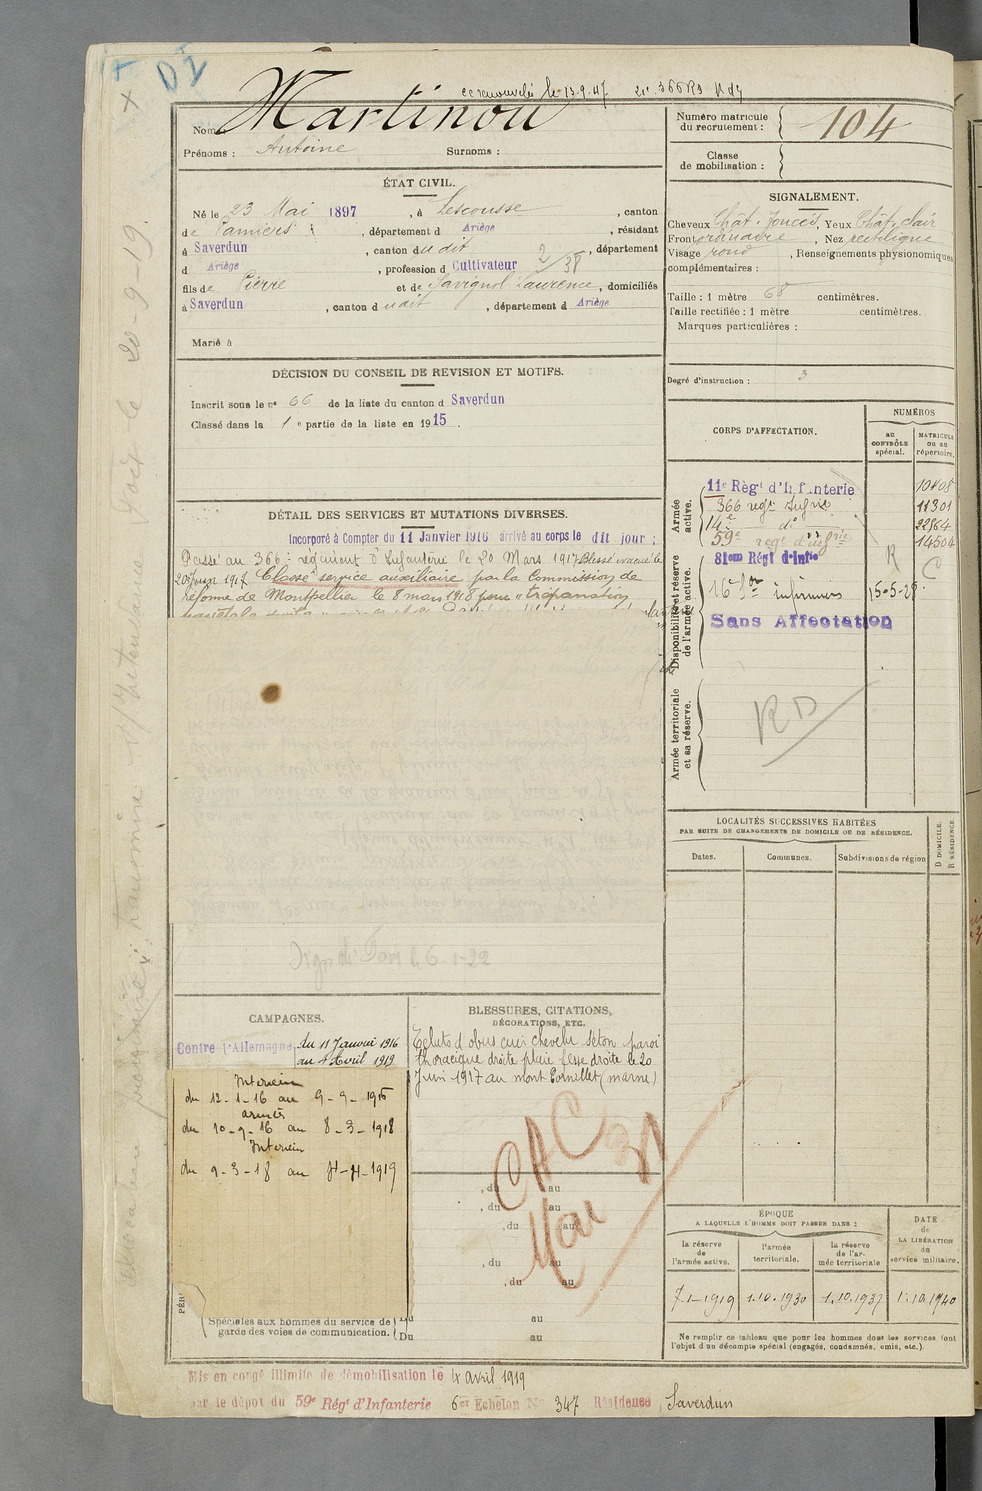 DI
Martinou
Nom :
Prénoms : Antoine Surnoms :
Numéro matricule
du recrutement : 104
Classe
de mobilisation :
ÉTAT CIVIL.
Né le 23 Mai 1897, à Lescousse, canton
de Pamiers, département d Ariège, résidant
à Saverdun, canton du dit, département
d Ariège, profession d Cultivateur 2/38
fils de Pierre et de Savignol Laurence, domiciliés
à Saverdun, canton d udit, département d Ariège
Marié à
SIGNALEMENT.
Cheveux Chât. foncés, Yeux Chât. clair
Front ordinaire, Nez rectiligne
Visage rond, Renseignements physionomiques
complémentaires :
Taille : 1 mètre 68 centimètres.
Taille rectifiée : 1 mètre centimètres.
Marques particulières :
Degré d'instruction : 3
DÉCISION DU CONSEIL DE REVISION ET MOTIFS.
Inscrit sous le n° 66 de la liste du canton d Saverdun
Classé dans la 1e partie de la liste en 1915.
DÉTAIL DES SERVICES ET MUTATIONS DIVERSES.
Incorporé à Compter du 11 Janvier 1916 arrivé au corps le dit jour ;
Passé au 366e régiment d'Infanterie le 20 Mars 1917 Blessé évacué le
20 juin 1917 Classé service auxiliaire par la Commission de
réforme de Montpellier le 8 mars 1918 pour "trépanation
CORPS D'AFFECTATION.
NUMÉROS
au
CONTRÔLE
spécial.
MATRICULE
ou au
répertoire.
Armée
active.
11e Règt d'Infanterie 10408
366 regt Infrie 11301
14e do 22864
59e regt d'infrie 14504
Disponibilité et réserve
de l'armée active.
81eme Régt d'Infie R C
16e Son infirmiers 15-5-28
Sans Affectation
Armée territoriale
et sa réserve.
RD
LOCALITÉS SUCCESSIVES HABITÉES
PAR SUITE DE CHANGEMENTS DE DOMICILE OU DE RÉSIDENCE.
Dates. Communes. Subdivisions de région
D DOMICILE.
R RÉSIDENCE.
CAMPAGNES.
Contre l'Allemagne du 11 Janvier 1916
au 4 Avril 1919
Intérieur
du 12-1-16 au 9-9-1916
armées
du 10-9-16 au 8-3-1918
Intérieur
du 9-3-18 au 4-4-1919
BLESSURES, CITATIONS,
DÉCORATIONS, ETC.
Eclats d'obus cuir chevelu séton paroi
thoracique droite plaie fesse droite le 20
Juin 1917 au mont Cornillet (marne)
CAC
Mai 31
, du au
, du au
, du au
, du au
, du au
Spéciales aux hommes du service de
garde des voies de communication.
Du au
Du au
ÉPOQUE
A LAQUELLE L'HOMME DOIT PASSER DANS :
la réserve
de
l'armée active.
l'armée
territoriale.
la réserve
de l'ar-
mée territoriale
DATE
de
LA LIBÉRATION
du
service militaire.
7.1-1919 1.10.1930 1.10.1937 1.10.1940
Ne remplir ce tableau que pour les hommes dont les services font
l'objet d'un décompte spécial (engagés, condamnés, omis, etc.).
Mis en congé illimité de démobilisation le 4 avril 1919
par le dépôt du 59e Régt d'Infanterie 6er Echelon No 347 Résidence, Saverdun